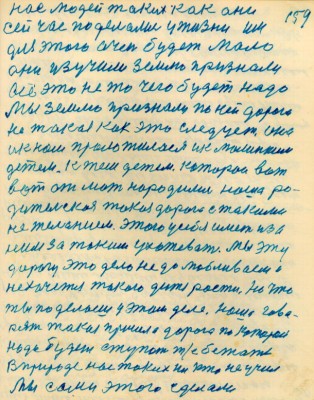 159
нас людей таких как они
сей час поделали у жизни им
для этого очен будет мало
они изучили землю признали
всё это не то чего будет надо
Мы землю признали по ней дорого
не такая как это следует, она
и к ним проложилася и к маленьким
детем. К тем детем, которои вот
вот от мат народили наша ро-
дителская такая дорога с такими
не желанием. Этого у себя имет и за
ним за таким ухажеват. Мы эту
дорогу это дело недомобливаем и
нехочется такого дитя рости, Но что
ты поделаеш у этом деле. Наше гово-
рят такая пришла дорога по которой
надо будет ступат т/к бежат
В природе нас таких ни кто не учил
Мы сами этого сделали